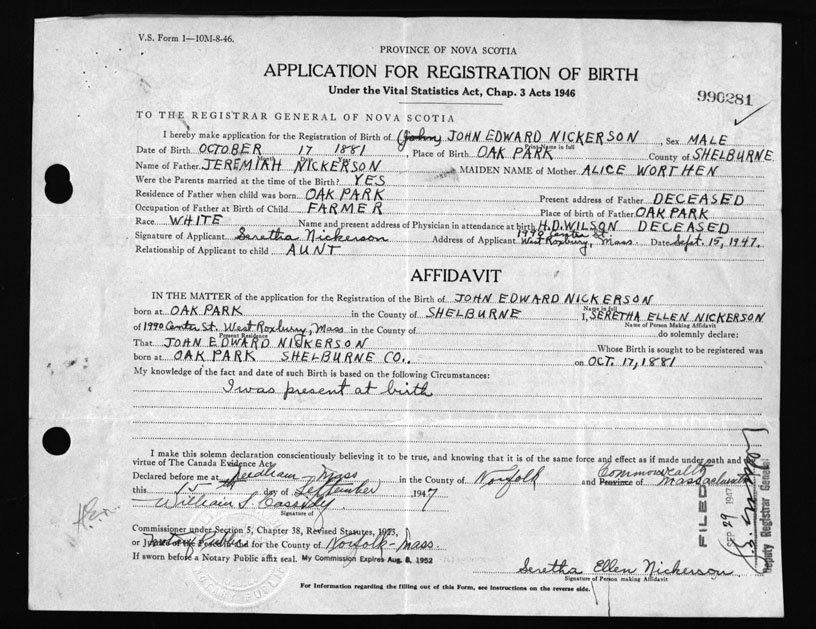 V.S. Form 1—10M-8-46.
PROVINCE OF NOVA SCOTIA
APPLICATION FOR REGISTRATION OF BIRTH
Under the Vital Statistics Act, Chap. 3 Acts 1946
990281
TO THE REGISTRAR GENERAL OF NOVA SCOTIA
I hereby make application for the Registration of Birth of (John) JOHN EDWARD NICKERSON, Sex MALE
Print Name in full
Date of Birth OCTOBER 17 1881, Place of Birth OAK PARK County of SHELBURNE
Month Day Year
Name of Father JEREMIAH NICKERSON MAIDEN NAME of Mother ALICE WORTHEN
Were the Parents married at the time of the Birth? YES
Residence of Father when child was born OAK PARK Present address of Father DECEASED
Occupation of Father at Birth of Child FARMER Place of birth of Father OAK PARK
Race WHITE Name and present address of Physician in attendance at birth H.D. WILSON DECEASED
Signature of Applicant Seretha Nickerson Address of Applicant 1990 Center St. West Roxbury, Mass. Date Sept. 15, 1947.
Relationship of Applicant to child AUNT
AFFIDAVIT
IN THE MATTER of the application for the Registration of the Birth of JOHN EDWARD NICKERSON
Name in full
born at OAK PARK in the County of SHELBURNE I, SERETHA ELLEN NICKERSON
Name of Person Making Affidavit
of 1990 Center St. West Roxbury, Mass in the County of do solemnly declare:
Present Residence
That JOHN EDWARD NICKERSON Whose Birth is sought to be registered was
born at OAK PARK SHELBURNE CO.. on OCT. 17, 1881
My knowledge of the fact and date of such Birth is based on the following Circumstances:
I was present at birth
I make this solemn declaration conscientiously believing it to be true, and knowing that it is of the same force and effect as if made under oath and by
virtue of The Canada Evidence Act.
Declared before me at Needham - Mass in the County of Norfolk and Province of Commonwealth Massachusetts
this 15th day of September 1947
William S. Cassidy
Signature of
Commissioner under Section 5, Chapter 38, Revised Statutes, 1923,
or Notary Public in and for the County of Norfolk-Mass.
If sworn before a Notary Public affix seal. My Commission Expires Aug. 8, 1952
Seretha Ellen Nickerson
Signature of Person making Affidavit
For Information regarding the filling out of this Form, see instructions on the reverse side.
FILED
SEP 29 1947
Deputy Registrar General